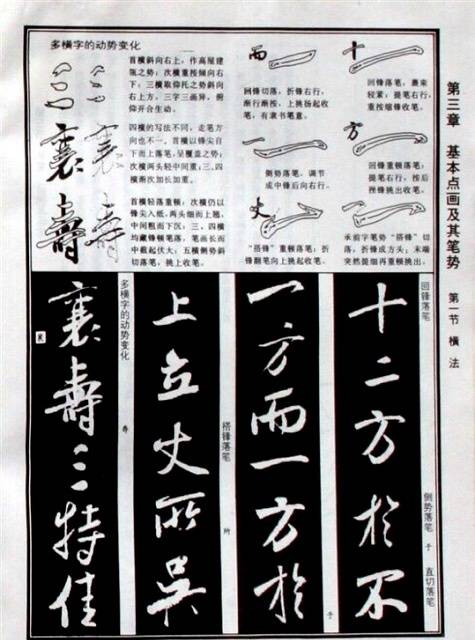 第三章 基本点画及其笔势 第一节 横法
十
回锋落笔，裹束
轻紧；提笔右行，
重按缩锋收笔。
方
回锋重顿落笔；
提笔右行，按后
挫锋挑出收笔。
承前字笔势“搭锋”切
落，折锋成方头；末端
突然提细再重顿挑出。
而
回锋切落，折锋右行，
渐行渐按，上挑扬起收
笔，有隶书笔意。
一
侧势落笔，调节
成中锋后向右行。
丈
“搭锋”重顿落笔，折
锋翻笔向上挑起收笔。
多横字的动势变化
三
首横斜向右上，作高屋建
瓴之势；次横重按倾向右
下；三横取仰托之势斜向
右上方。三字三画异，俯
仰开合生动。
襄
四横的写法不同，走笔方
向也不一。首横以锋尖自
下而上落笔，呈覆盖之势；
次横两头轻中间重；三、四
横渐次加长加重。
寿
首横轻落重顿，次横仍以
锋尖入纸，两头细而上翘，
中间粗而下沉；三、四横
均藏锋顿笔落，笔画长而
中截起伏大；五横侧势斜
切落笔，挑上收笔。
回锋落笔
侧势落笔 于 直切落笔
十二方於不
一方而一方於
于
搭锋落笔
所
上立丈所吴
多横字的动势变化
寿
襄寿三特佳